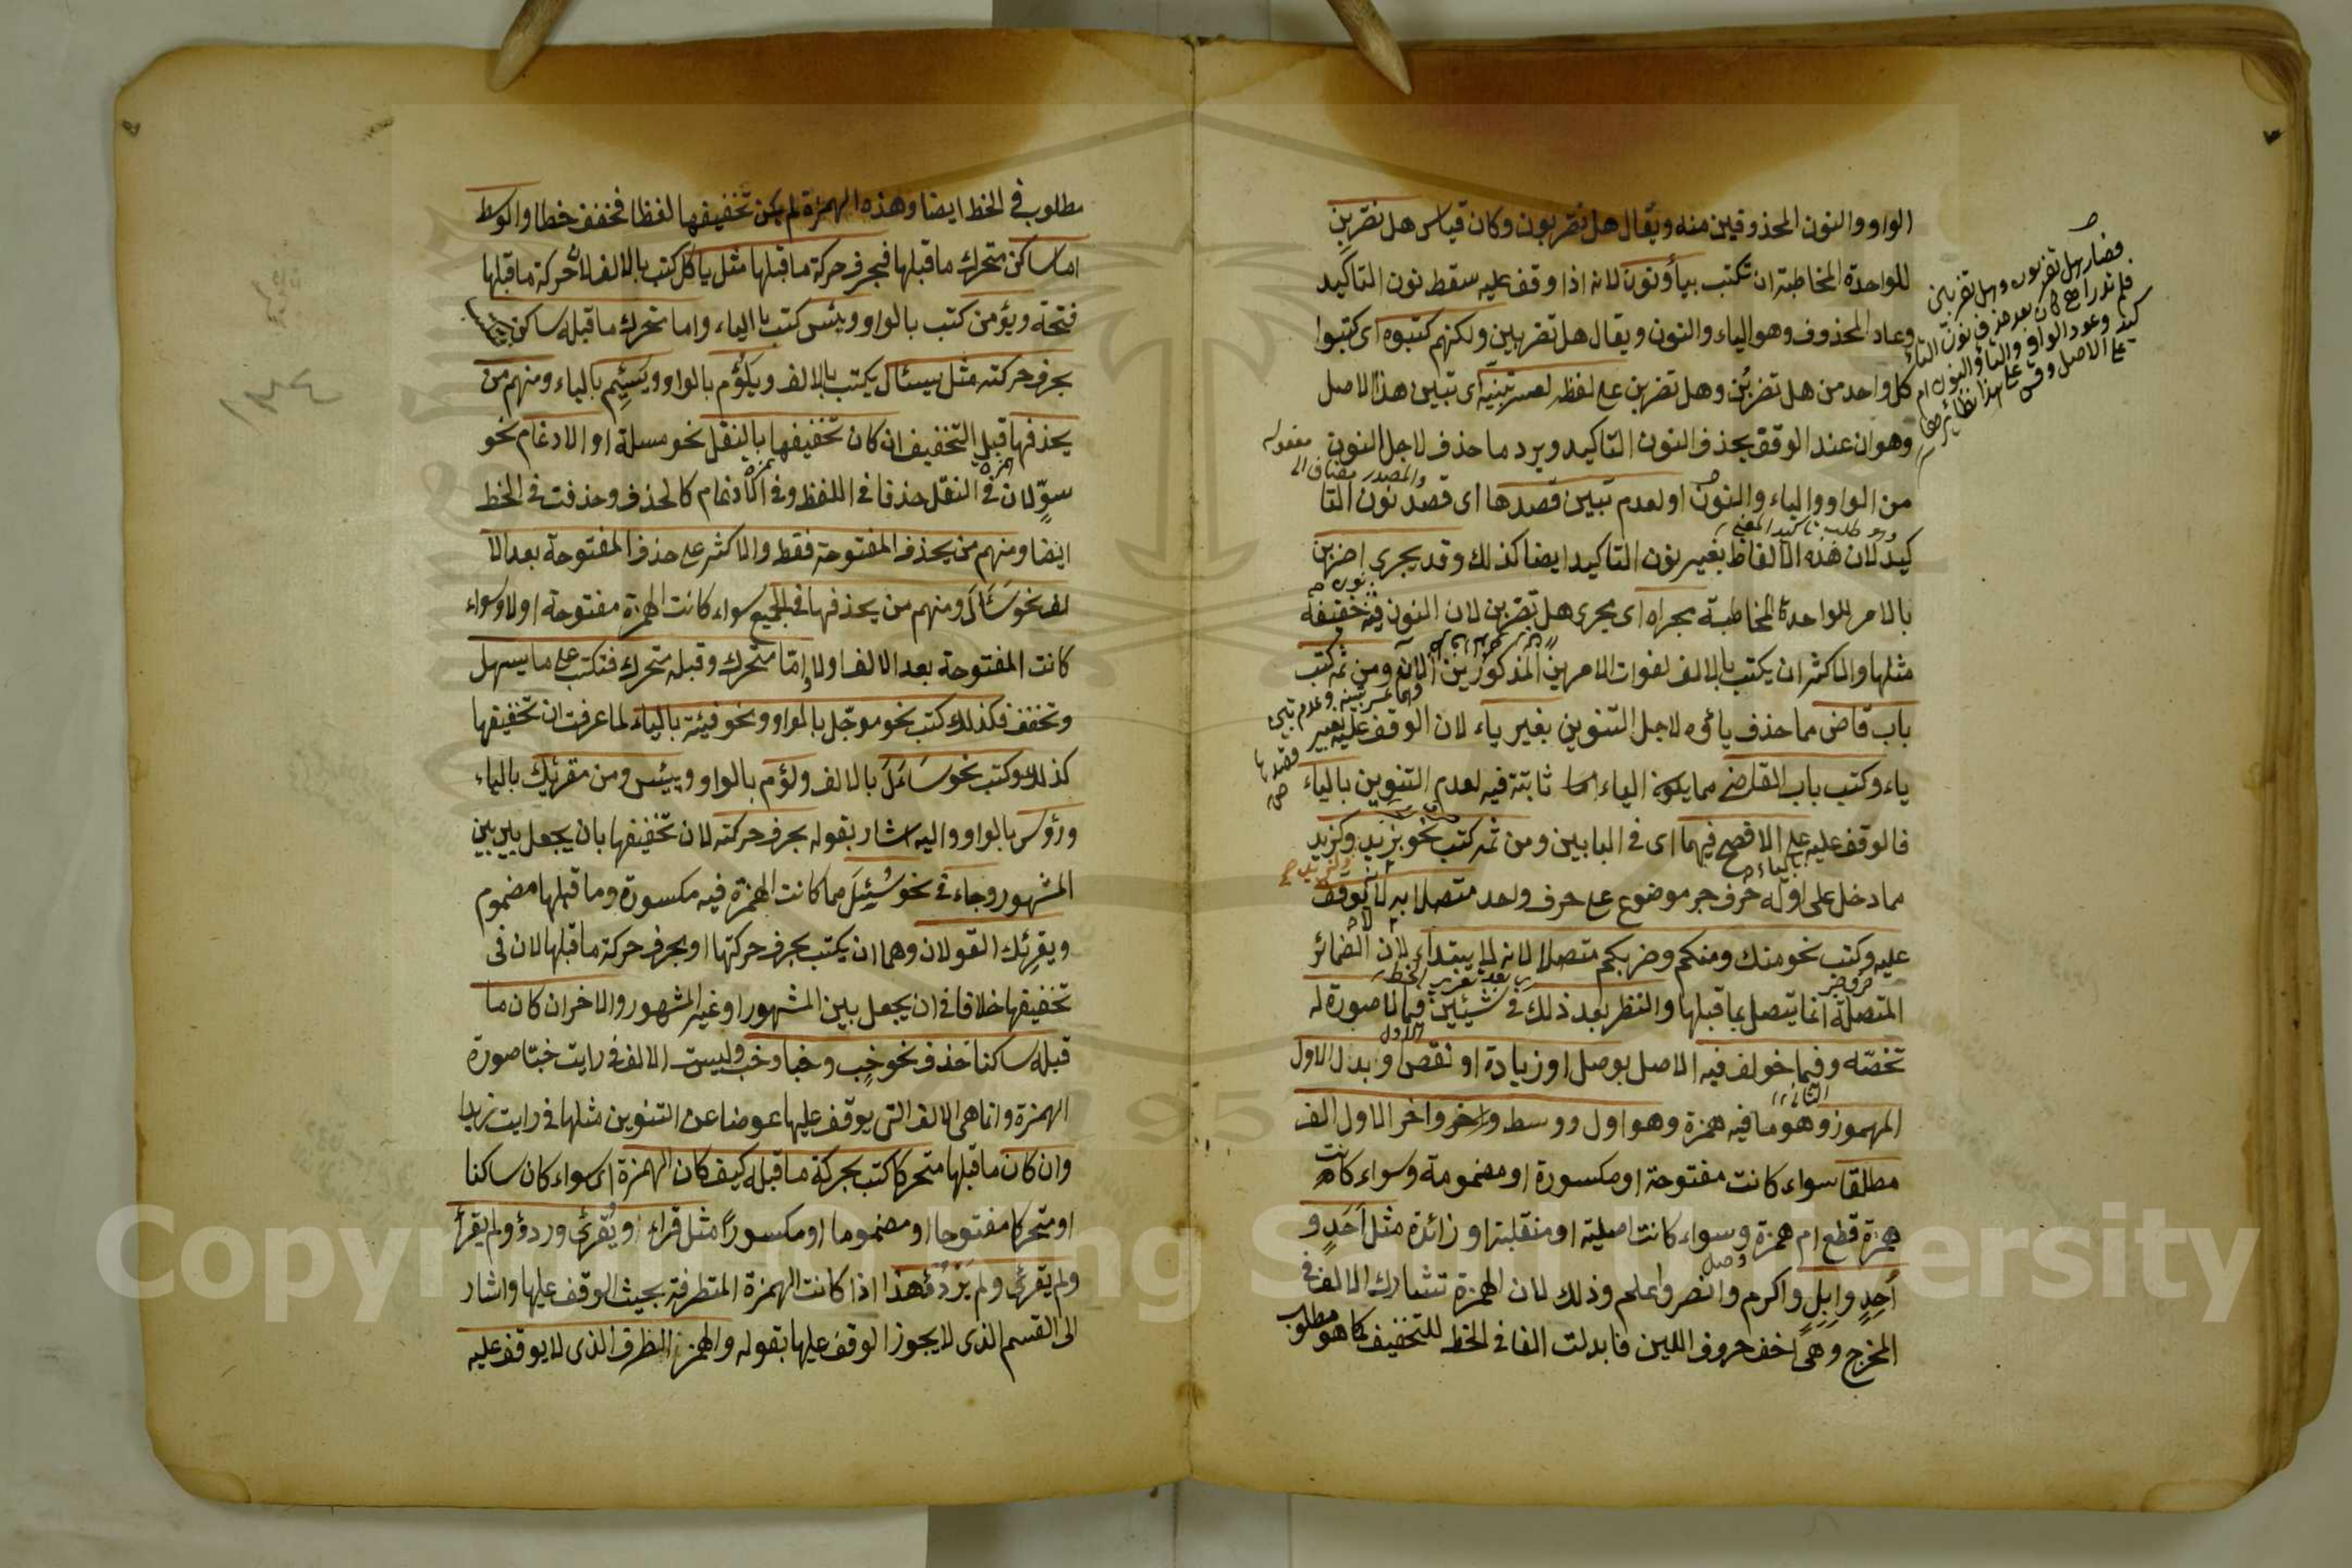 الواو والنون المحذوفين منه ويقال هل تضربون وكان قياس هل تضربن
للواحدة المخاطبة ان تكتب بياء ونون لانه اذا وقف عليه سقط نون التاكيد
وعاد المحذوف وهو الياء والنون ويقال هل تضربين ولكنهم كتبوه اى كتبوا
كل واحد من هل تضربن وهل تضربن على لفظه لعسر تبينه اى تبين هذا الاصل
وهو ان عند الوقف يحذف النون التاكيد ويرد ما حذف لاجل النون
من الواو والياء والنون او لعدم تبين قصدها اى قصد نون التا
كيد لان هذه الالفاظ بغير نون التاكيد ايضا كذلك وقد يجرى اضربن
بالامر للواحدة المخاطبة مجراه اى مجرى هل تضربن لان النون فيه خفيفة
مثلها والاكثر ان يكتب بالالف لفوات الامرين المذكورين الان ومن ثمه كتب
باب قاض مما حذف ياؤه لاجل التنوين بغير ياء لان الوقف عليه بغير
ياء وكتب باب القاضى مما يكون الياء ثابتة فيه لعدم التنوين بالياء
فالوقف عليه على الافصح فيهما اى فى البابين ومن ثمه كتب نحو بزيد وكزيد
مما دخل على اوله حرف جر موضوع على حرف واحد متصلا به لا يوقف
عليه وكتب نحو منك ومنكم وضربكم متصلا لانه لا يبتداء لان الضمائر
المتصلة انما يتصل بما قبلها والنظر بعد ذلك فى شيئين فيما لا صورة له
تخصه وفيما خولف فيه الاصل بوصل او زيادة او نقص او بدل الاول
المهموز وهو ما فيه همزة وهو اول ووسط واخر الاول الف
مطلقا سواء كانت مفتوحة او مكسورة او مضمومة وسواء كانت
همزة قطع ام همزة وصل وسواء كانت اصلية او منقلبة او زائدة مثل احد و
أحد وابل واكرم وانصر واعلم وذلك لان الهمزة تشارك الالف فى
المخرج وهى اخف حروف اللين فابدلت الفا فى الخط للتخفيف كما هو مطلوب
فصار هل تضربون وهل تضربين
مطلوب فى الخط ايضا وهذه الهمزة لم يمكن تخفيفها لفظا فخفف خطا والوسط
اما ساكن متحرك ما قبلها فبحرف حركة ما قبلها مثل ياكل كتب بالالف لان حركة ما قبلها
فتحة ويؤمن كتب بالواو وبئس كتب بالياء واما متحرك ما قبله ساكن
بحرف حركته مثل يسئال يكتب بالالف ويلؤم بالواو ويسئم بالياء ومنهم من
يحذفها قبل التخفيف ان كان تخفيفها بالنقل نحو مسلة او الادغام نحو
سوّ لان فى النقل حذفا فى اللفظ وفى الادغام كالحذف وحذفت فى الخط
ايضا ومنهم من يحذف المفتوحة فقط والاكثر على حذف المفتوحة بعد الا
لف نحو سائل ومنهم من يحذفها فى الجميع سواء كانت الهمزة مفتوحة اولا وسواء
كانت المفتوحة بعد الالف اولا واما متحرك وقبله متحرك فتكتب على ما يسهل
وتخفف فكذلك كتب نحو موجّل بالواو ونحو فيئة بالياء لما عرفت ان تخفيفها
كذلك وكتب نحو سأل بالالف ولؤم بالواو ويئس ومن مقرئك بالياء
ورؤس بالواو واليه اشار بقوله بحرف حركته لان تخفيفها بان يجعل بين بين
المشهور وجاء فى نحو سُئِل مما كانت الهمزة فيه مكسورة وما قبلها مضموم
ويقرئك القولان وهما ان يكتب بحرف حركتها او بحرف حركة ما قبلها لان فى
تخفيفها خلافا فى ان يجعل بين المشهور او غير المشهور والاخر ان كان ما
قبله ساكنا حذف نحو خب وخبا وخب وليست الالف فى رايت خبّا صورة
الهمزة وانما هى الالف التى يوقف عليها عوضا عن التنوين مثلها فى رايت زيدا
وان كان ما قبلها متحركا كتب بحركة ما قبله كيف كان الهمزة اى سواء كان ساكنا
او متحركا مفتوحا او مضموما او مكسورا مثل قراء ويقرئ وردؤ ولم يقرأ
ولم يقرئ ولم يردؤ هذا اذا كانت الهمزة المتطرفة بحيث الوقف عليها واشار
الى القسم الذى لا يجوز الوقف عليها بقوله والهمزة الطرف الذى لا يوقف عليه
١٣٤
Copyright © King Saud University